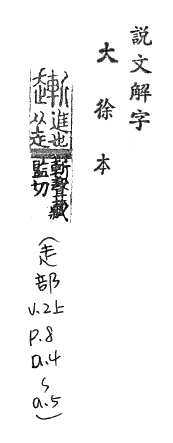 説文解字
大徐本
進也
从走
斬聲藏
監切
(走部
v.2上
p.8
a.4
~
a.5)